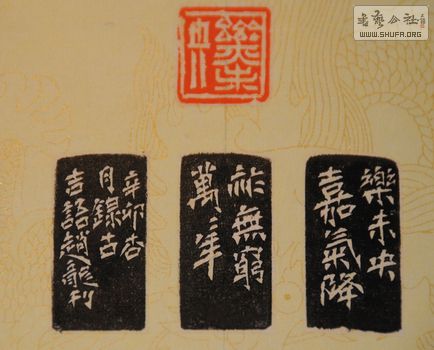 書藝公社
WWW.SHUFA.ORG
樂未央
樂未央
嘉氣降
祚無窮
萬〻年
辛卯杏
月錄古
吉語趙龍刊